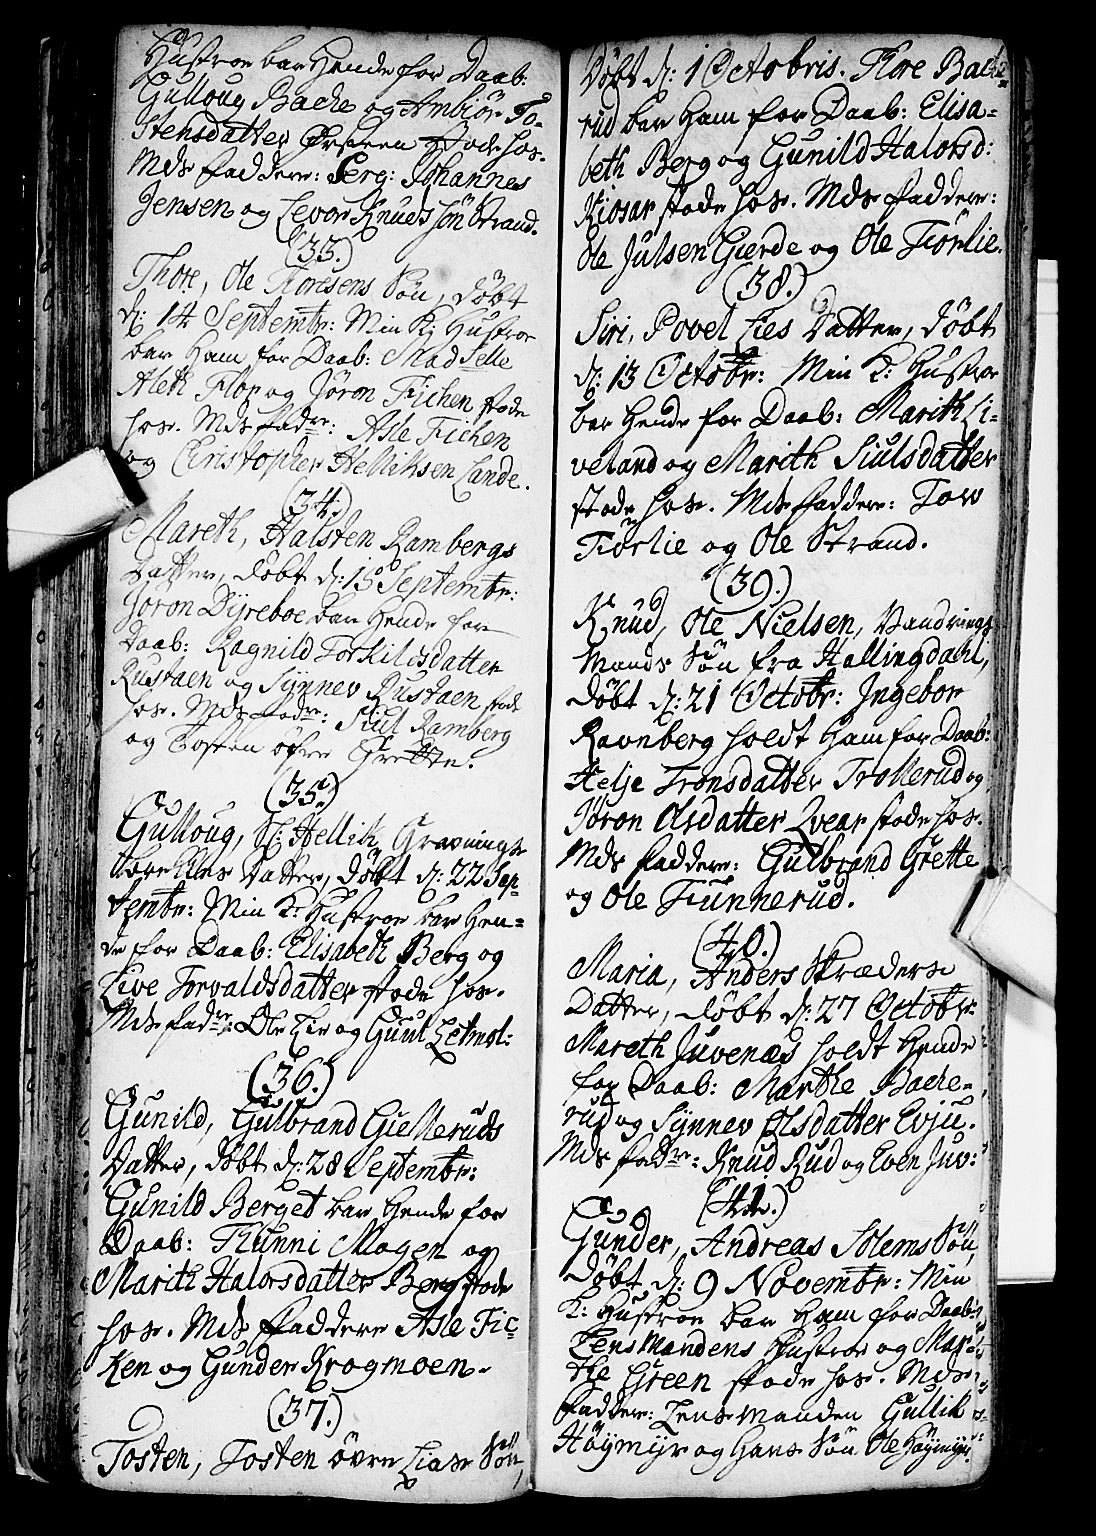 Hustroe bar Hende for Daab:
Gulloug Bache og Ambiør To-
stensdatter Ørsteen stode hos.
Mds faddere: Serg: Johannes
Jensen og Levor Knuds Søn Strand.
(33.)
Thore, Ole Thoresens Søn, døbt
d: 14 Septembr: Min K: Hustroe
bar Ham for Daab: Madselle
Aleth Flor og Jøron Fichen stode
hos. Mds fadre: Asle Fichen
og Christopher Helliksen Lande.
(34.)
Mareth, Halsten Rambergs
Datter, døbt d: 15 Septembr:
Jøron Dyreboe bar Hende for
Daab: Ragnild Torkildsdatter
Rustaen og Synnev Rustaen stode
hos. Mds fadre: Siul Ramberg
og Tosten øfre Grette.
(35.)
Gulloug, Hellik Gravnings-
Datter, døbt d: 22 Sep-
tembr: Min K: Hustroe bar Hen-
de for Daab: Elisabeth Berg og
Live Torvaldsdatter stode hos.
Mds fadre: Ole Lie og Guul Letmol:
(36.)
Gunild, Gulbrand Gielleruds
Datter, døbt d: 28 Septembr:
Gunild Berget bar Hende for
Daab: Thunni Mogen og
Marith Halorsdatter Berg stode
hos. Mds faddere Asle Fic-
ken og Gunder Krogmoen.
(37.)
Tosten, Tosten øvre Liase Søn,
Døbt d: 1 Octobris. Thore Bache-
rud bar Ham for Daab: Elisa-
beth Berg og Gunild Halorsd:
Kiosar stode hos. Mds faddere:
Ole Julsen Gierde og Ole Tiörlie.
(38.)
Siri, Povel Lies Datter, døbt
d: 13 Octobr: Min K: Hustroe
bar Hende for Daab: Marith Li-
veland og Marith Siulsdatter
stode hos. Mds faddere: Tov
Tiorlie og Ole Strand.
(39.)
Knud, Ole Nielsen, Vandrings
Mands Søn fra Hallingdahl,
døbt d: 21 Octobr: Ingebor
Ravnberg holdt Ham for Daab:
Helje Tronsdatter Trollerud og
Jøron Olsdatter Qvear stode hos.
Mds faddere: Gulbrand Grette
og Ole Tiunnerud.
(40.)
Maria, Anders Skræders
Datter, døbt d: 27 Octobr:
Mareth Juvenæs holdt Hende
for Daab: Marthe Bache-
rud og Synnev Olsdatter Evju.
Mds fadre: Knud Rud og Even Juv:
(41.)
Gunder, Andreas Solems Søn,
døbt d: 9 Novembr: Min
K: Hustroe bar Ham for Daab:
Lensmandens Hustroe og Mar-
the Green stode hos. Mds
faddere: Lensmanden Gullik
Høymyr og Hans Søn Ole Høymyr.